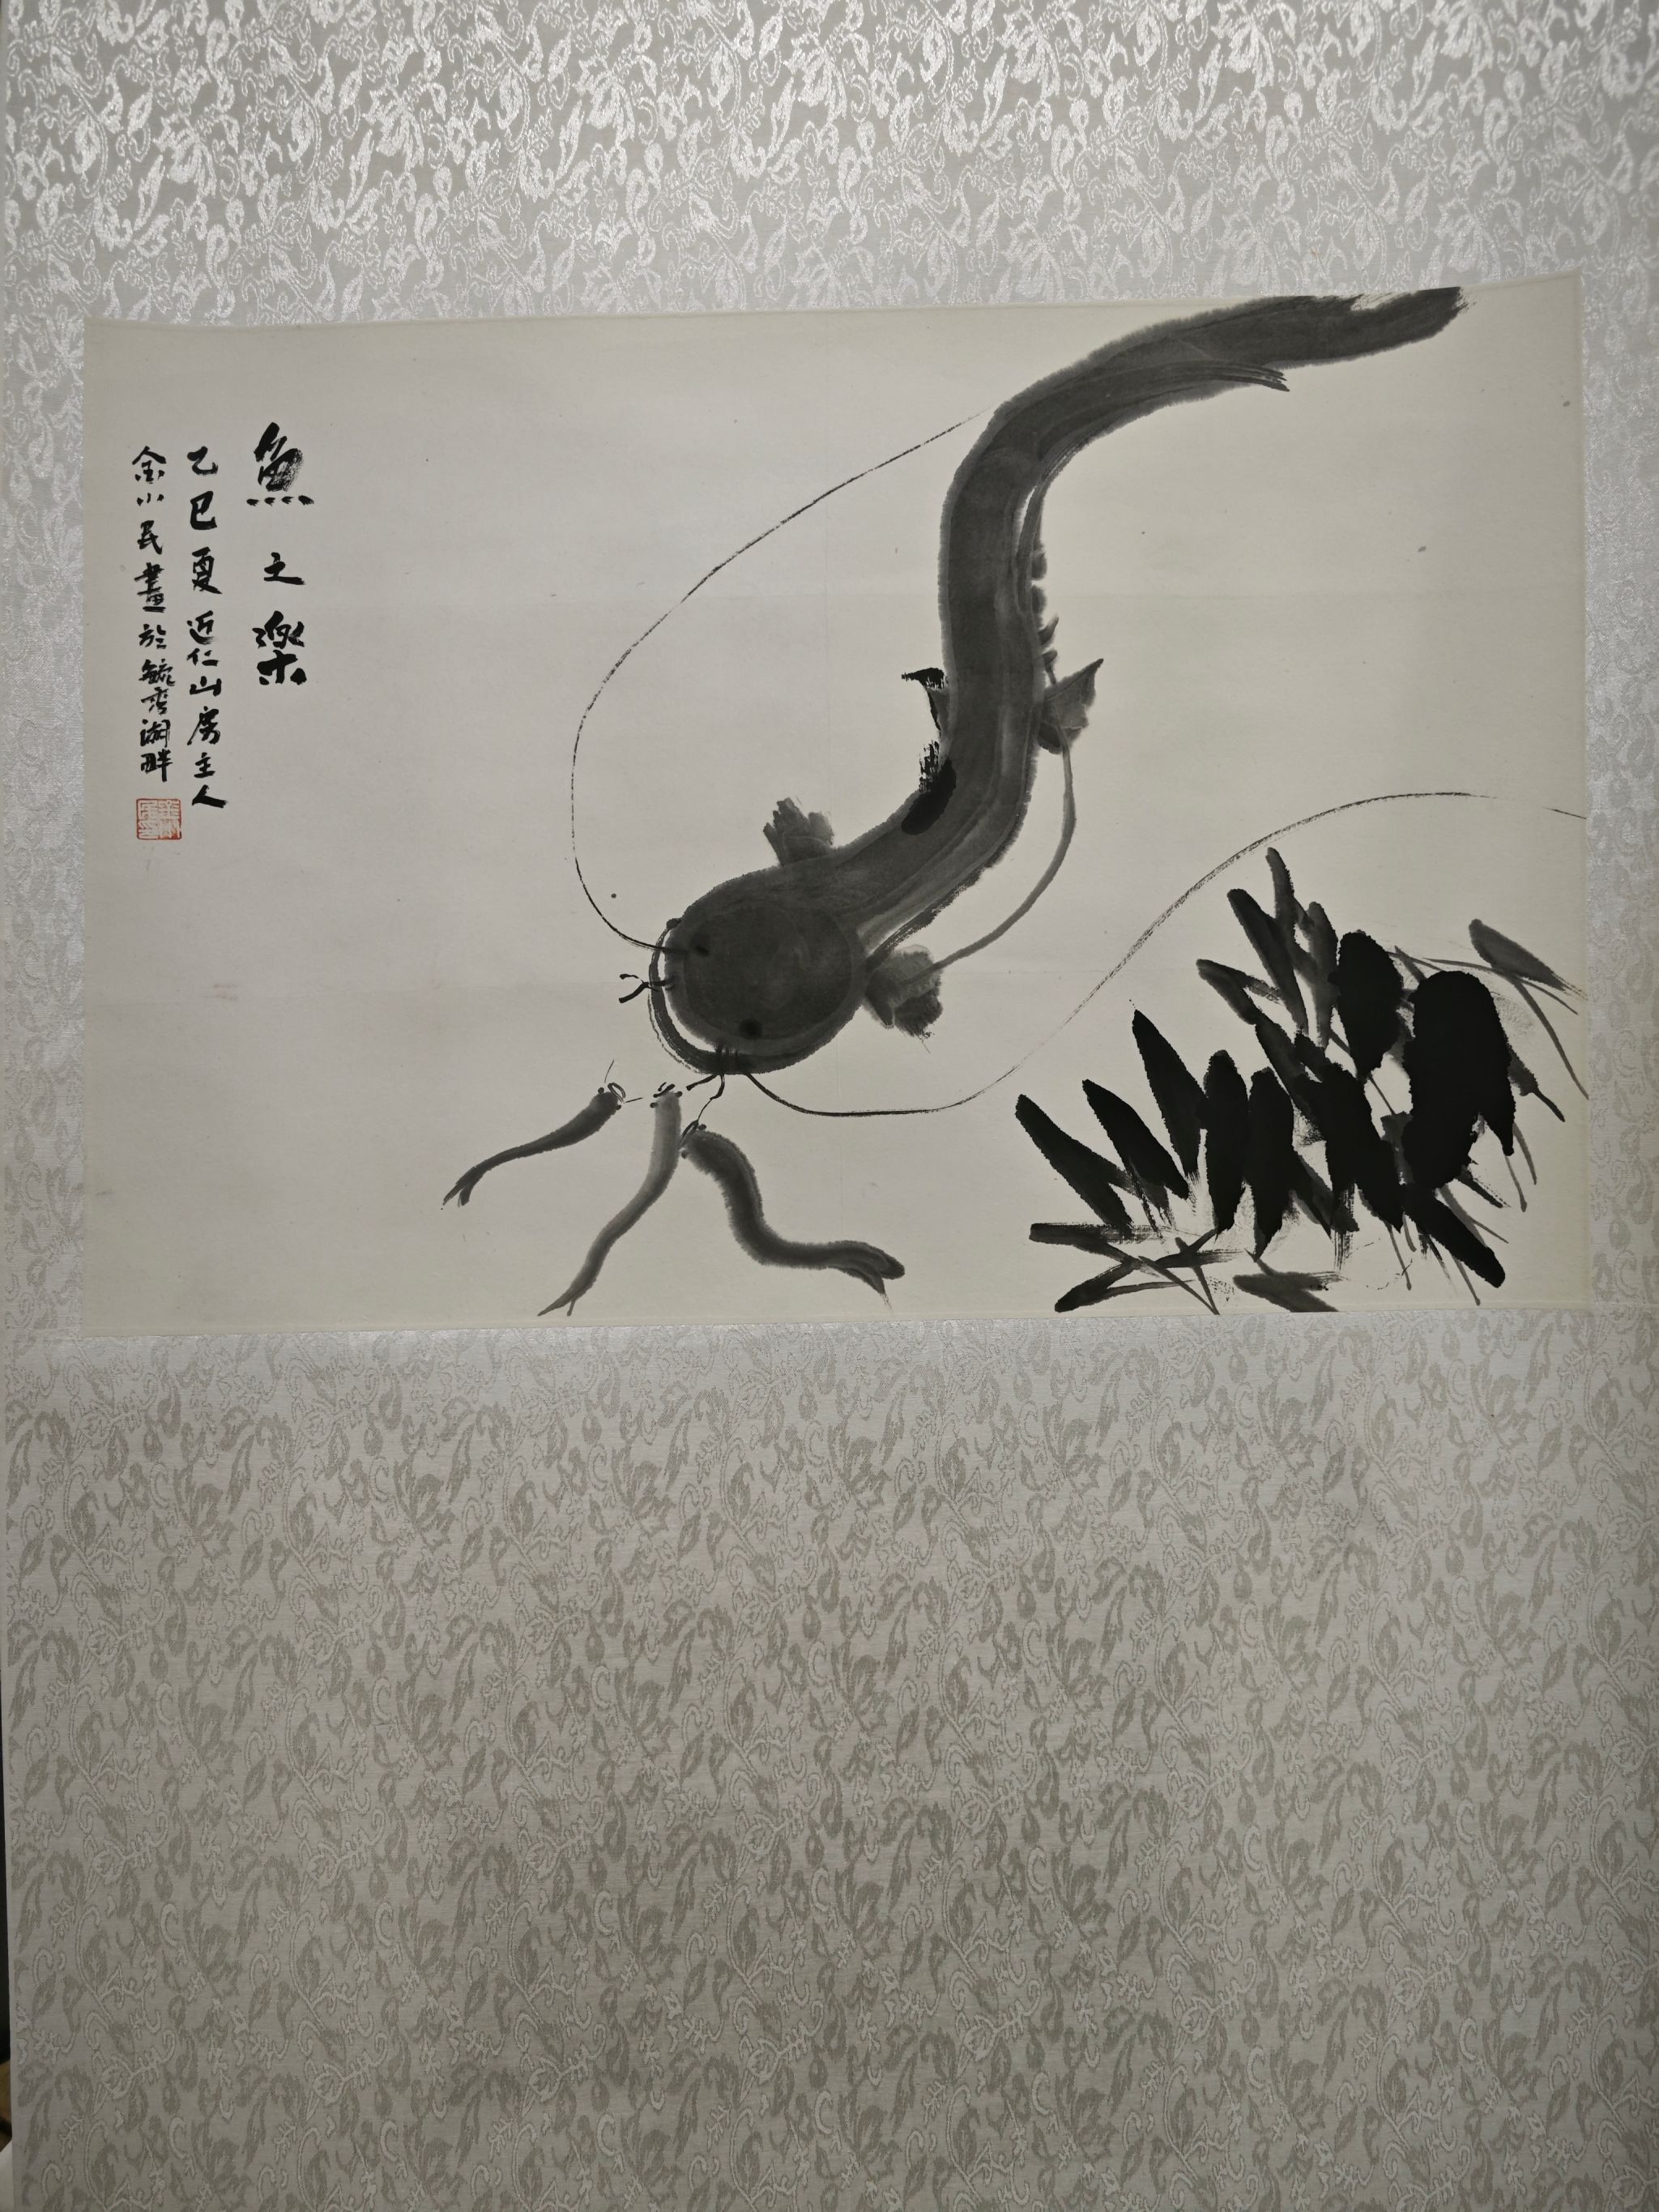 魚之樂
乙巳夏近仁山房主人
金小民畫於毓秀湖畔